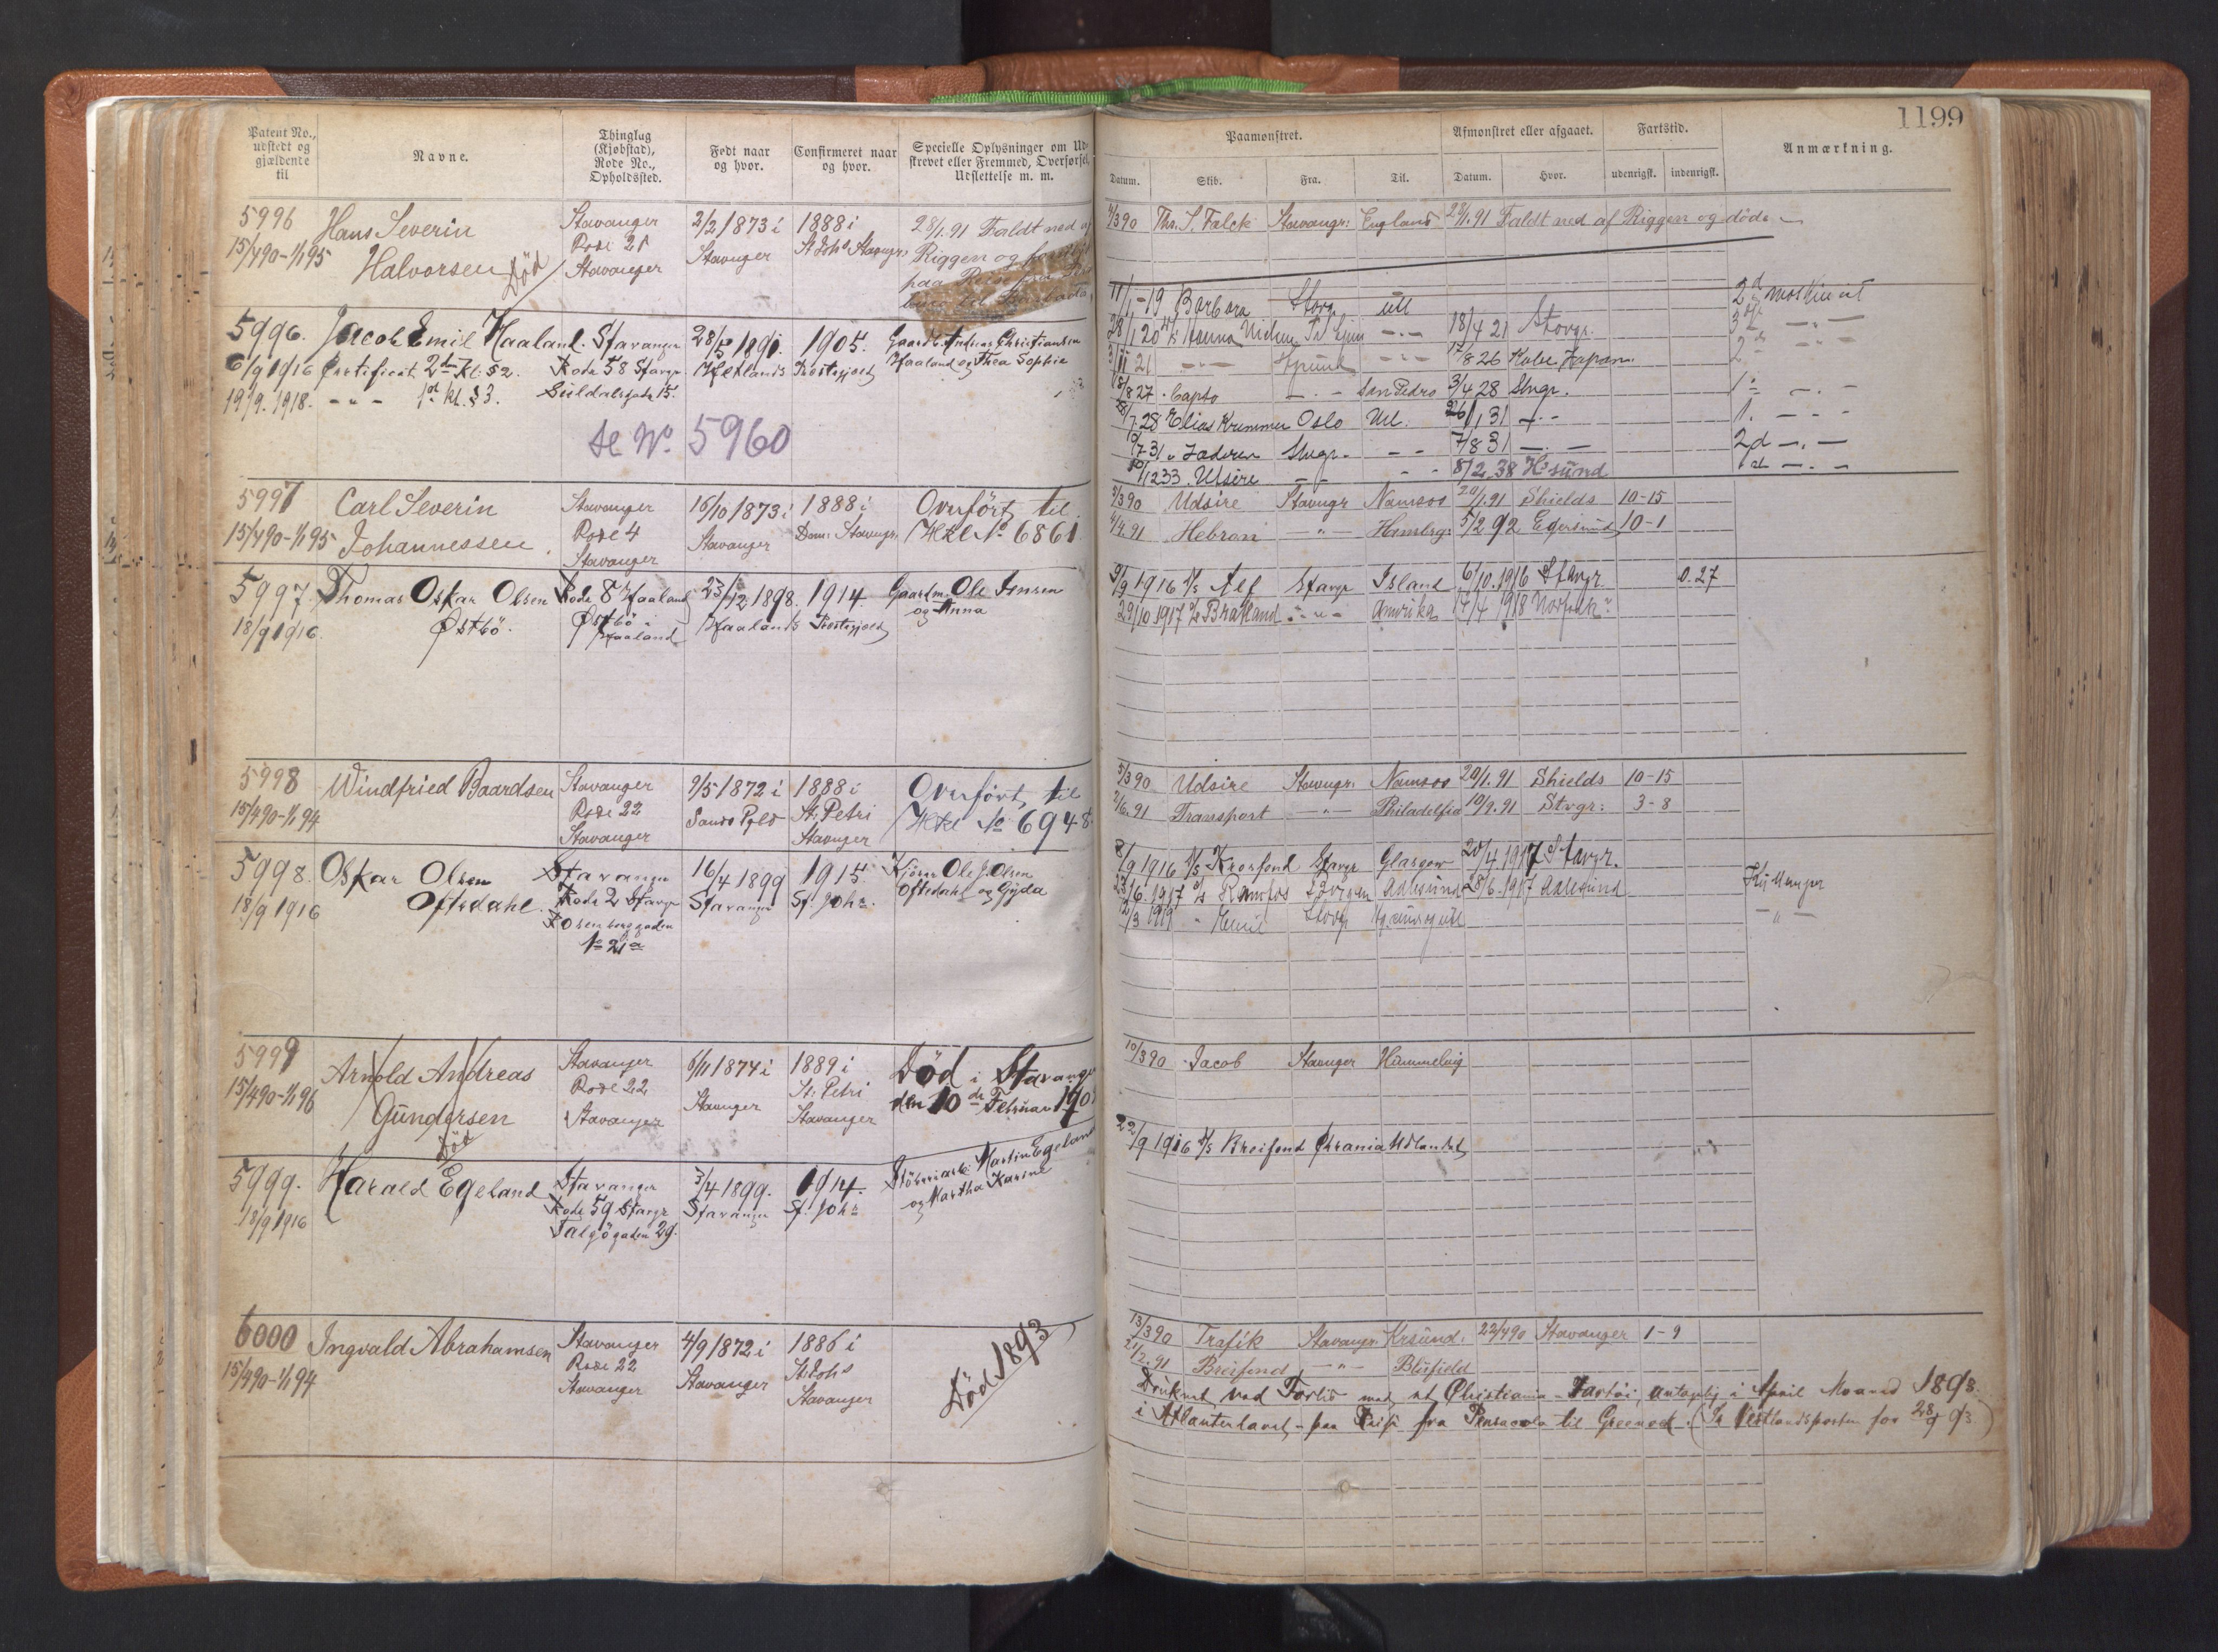 1199
Patent No., udstedt og gjældende til
Navne.
Thinglag (Kjøbstad), Rode No., Opholdssted.
Født naar og hvor.
Confirmeret naar og hvor.
Specielle Oplysninger om Ud-
strevet eller Fremmed, Overførsel,
Udslettelse m. m.
Paamonstret.
Afmonstret eller afgaaet.
Fartstid.
Anmærkning.
Datum. Skib. Fra. Til. Datum. Hvor. udenrigsk. indenrigsk.
5996 Hans Severin Stavanger 2/2 1873 i 1888 i 28/1.91 Faldt ned af
15/4 90-1/1 95 Halvorsen Død Rode 21 Stavanger St Joh: Stavngr. Riggen og
Stavanger paa Reise fra
til
/3 90 Ths. S. Falck Stavangr: England 28/1.91 Faldt ned af Riggen og døde
5996. Jacob Emil Haaland. Stavanger 28/5 1891. 1905. Gaardb. Andreas Christiansen
6/9 1916 Certifikat 2den Kl. § 2. Rode 58 Stavgr Hetlands Prestegjeld Haaland og Thea Sophie
19/9. 1918. - " - 1st kl. § 3. Suldalsgade 15.
se No. 5960
11/1-19 Barbora Stvgr. utl 2d maskinist
28/1 20 Hanna Nielsen -.- 18/4 21 Stavgr. -.-
21 -.- -.- 17/8 26 Kobe, Japan. 2 -.-
8/8 27. Capto -.- San Pedro 3/4 28 Stvgr. 1 -.-
28 Elias Kremmer Oslo Utl. 26/1 31 -.- 1. -.-
31 Jæderen Stvgr. -.- 7/8 31 -.- 2d -.-
10/12 33. Utsire -.- -.- 8/2.38 H.sund -.-
5997 Carl Severin Stavanger 16/10 1873 i 1888 i Overført til
15/4 90-1/1 95 Johannessen. Rode 4 Stavanger Dom: Stavngr. Htl No 6861
Stavanger
3/3 90 Udsire Stavngr Namsos 20/1.91 Shields 10-15
4/4.91 Hebron -"- Hambrg: 5/2 92 Egersund 10-1
5997. Thomas Oskar Olsen Rode 8 Haaland 23/12 1898. 1914. Gaardm. Ole Jensen
18/9 1916. Østbö. Østbö Haalands Prestegjeld og Anna
Haaland
9/9 1916 Alf Stavgr Island 6/10.1916 Stavgr. 0.27
29/10 1917 Bratland -"- Amerika 17/4 1918 Norfolk
5998 Windfried Baardsen Stavanger 9/5 1872 i 1888 i Overført til
15/4 90-1/1 94 Rode 22 Sands Pgld St: Petri Htl No 6948.
Stavanger Stavanger
5/3 90 Udsire Stavngr: Namsos 20/1.91 Shields 10-15
/6.91 Transport -"- Philadelfia 10/9.91 Stvgr: 3-8
5998. Oskar Olsen Stavanger 16/4 1899 1915. Ole J. Olsen
18/9 1916 Oftedahl. Rode 2 Stavgr Stavanger St. Johs. Oftedahl og Gyda
Rosenbergsgaden
No 21a
8/9 1916 Krosfond Stavgr Glasgow 20/4.1917 Stavgr.
23/6.1917 Ramfos Aalesund 28/6.1917 Aalesund
12/3 1919 " Stavgr
-"-
5999 Arnold Andreas Stavanger 6/11 1874 i 1889 i Død i Stavanger
15/4 90-1/1 96 Gundersen Rode 22 Stavanger St: Petri den 10de Februar 190
Død Stavanger Stavanger
10/3 90 Jacob Stavanger Hummelvig
5999. Harald Egeland Stavanger 3/4 1899. 1914. Martin Egeland
18/9 1916 Rode 59 Stavgr Stavanger St. Johs og Martha Karine
Talgögaden 29.
22/9 1916 Breifond Chrania Utlandet
6000 Ingvald Abrahamsen Stavanger 4/9 1872 i 1886 i Død 1893
15/4 90-1/1 94 Rode 22 Stavanger St Johs
Stavanger Stavanger
13/3 90 Trafik Stavangr: Krsund. 22/4 90 Stavanger 1-9
/2.91 Breifond -"- Blüfield
Druknet ved Forlis med et Christiania Fartøi, antagelig i April Maaned 1893.
i Atlanterhavet, paa Reise fra Pensacola til Greenock. (Se Vestlandsposten for 28/ 93.)